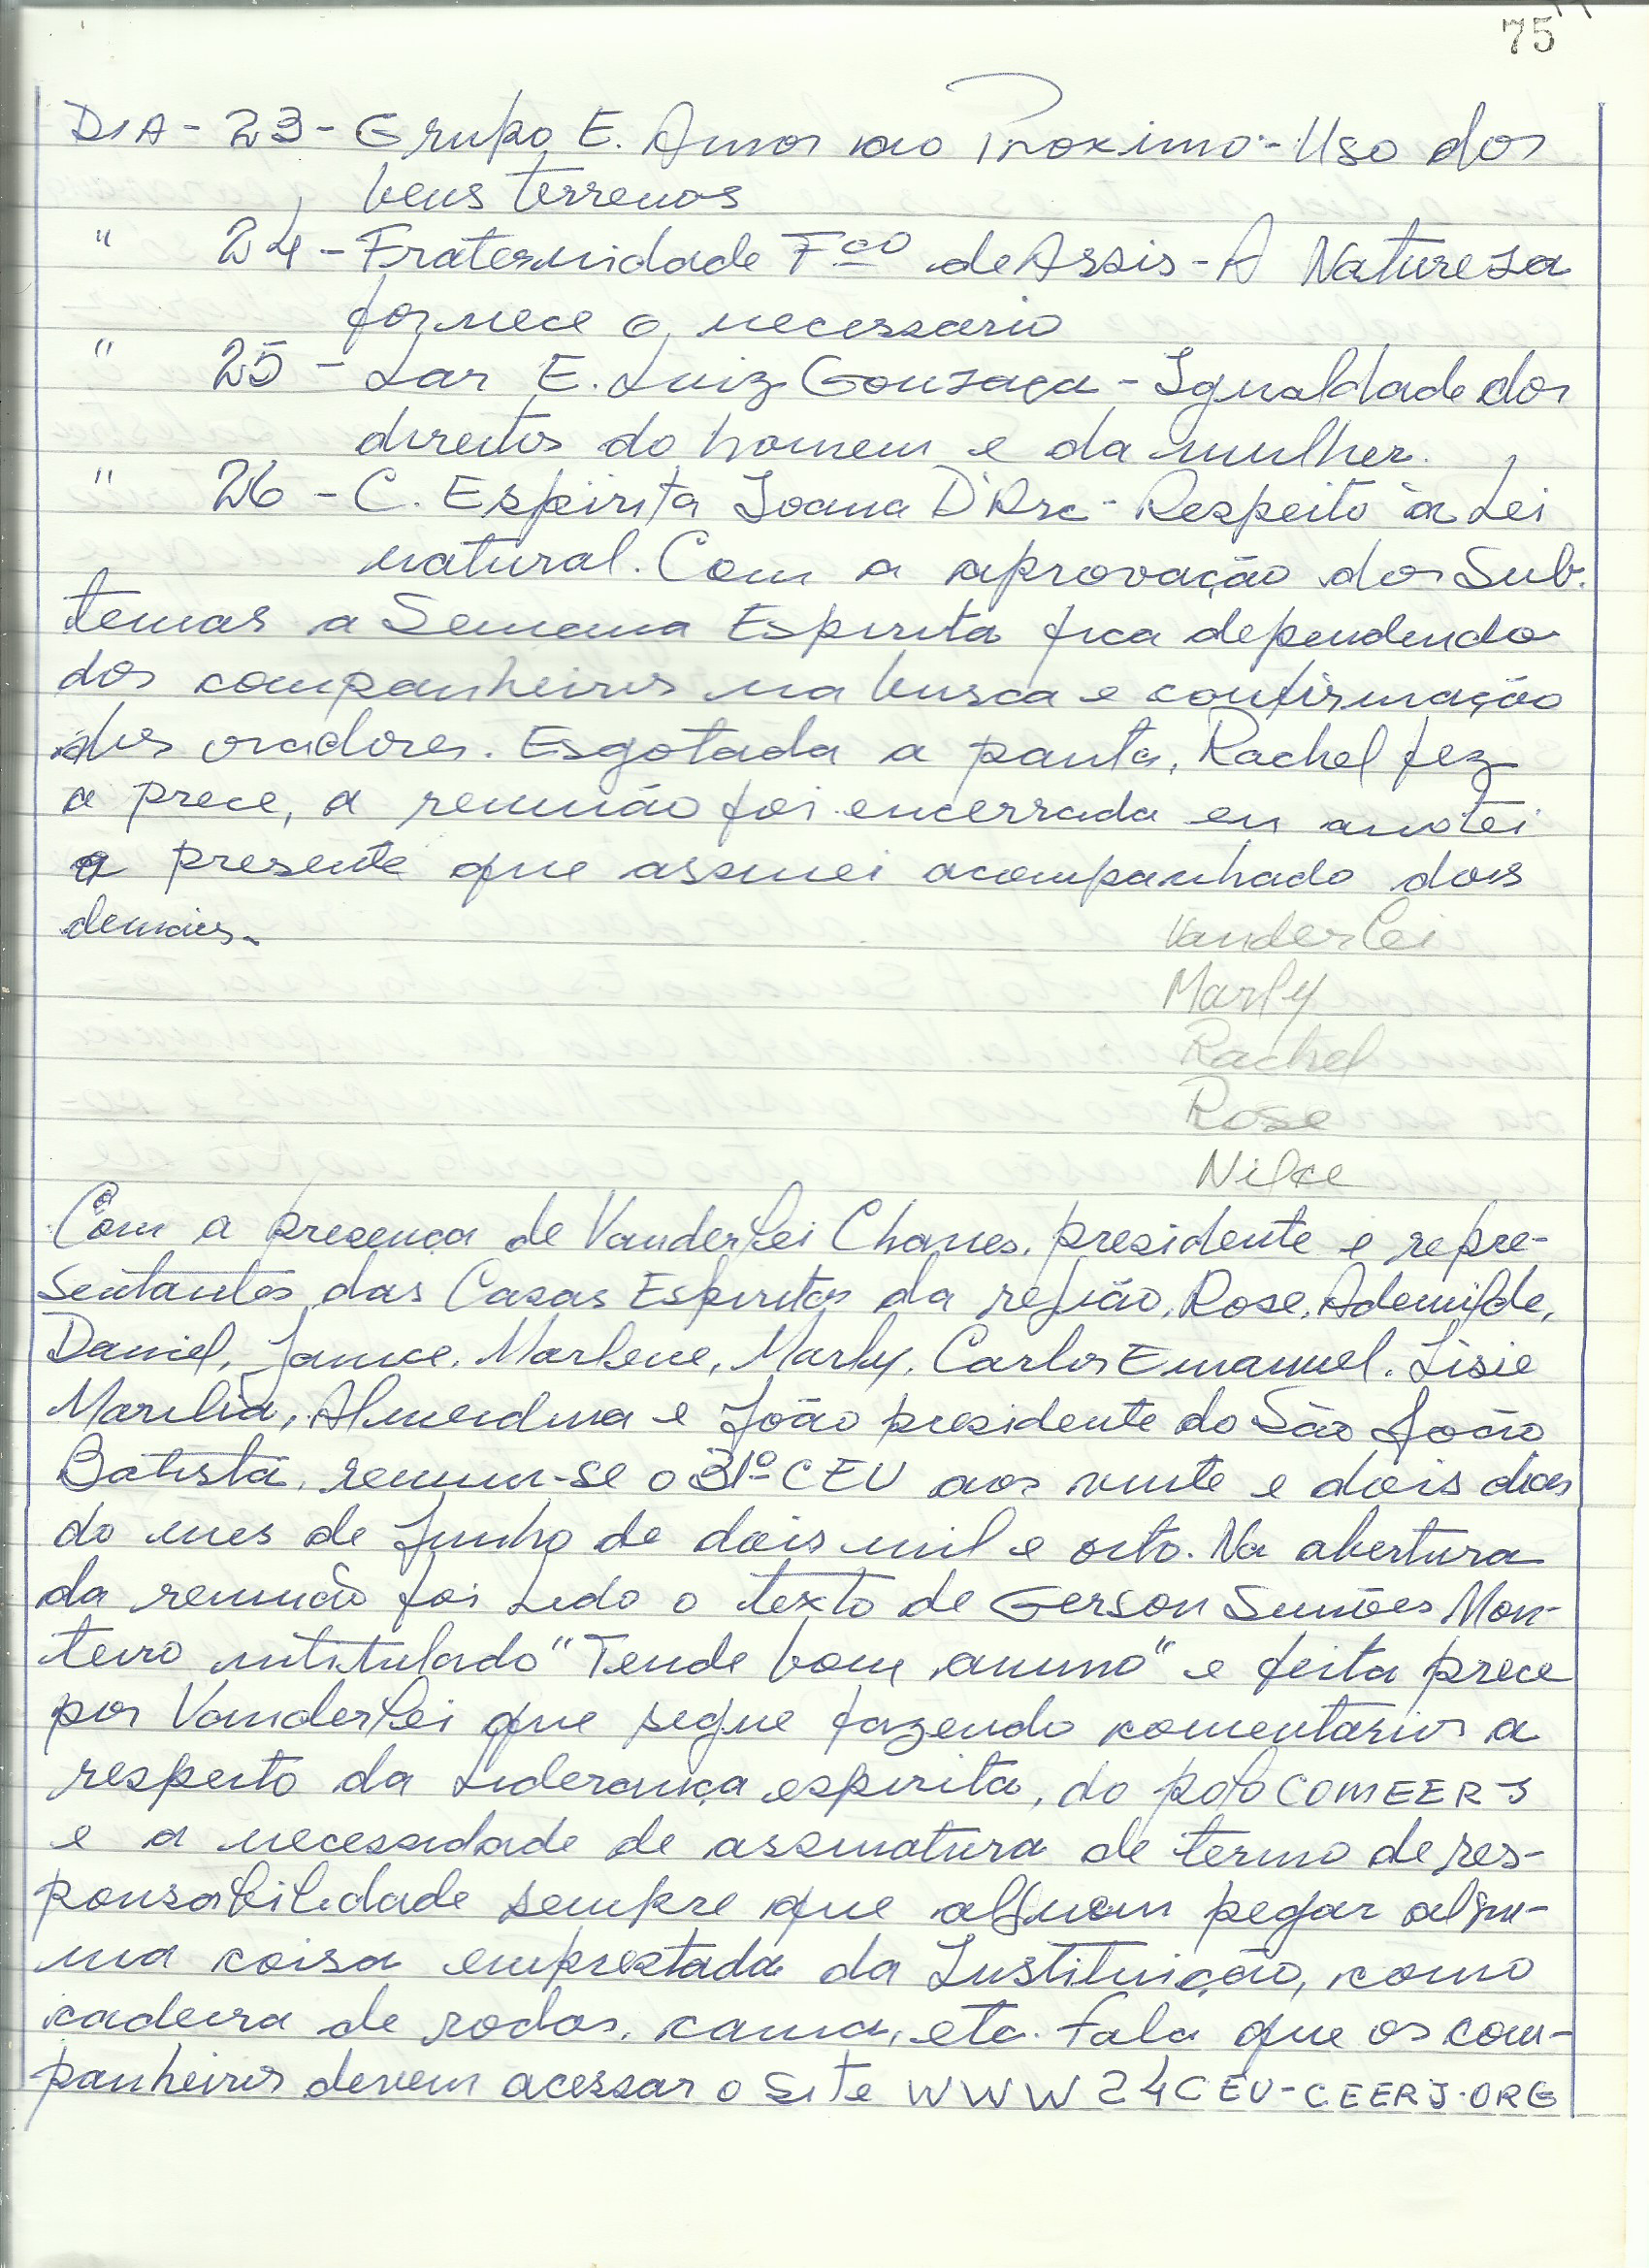 75
DIA - 23 - Grupo E. Amor ao Proximo - Uso dos
bens terrenos
" 24 - Fraternidade Fco de Assis - A Natureza
fornece o necessario
" 25 - Lar E. Luiz Gonzaga - Igualdade dos
direitos do homem e da mulher.
" 26 - C. Espírita Joana D'Arc - Respeito à Lei
natural. Com a aprovação dos Sub.
temas a Semana Espirita fica dependendo
dos companheiros na busca e confirmação
dos oradores. Esgotada a pauta, Rachel fez
a prece, a reunião foi encerrada eu anotei
a presente que assinei acompanhado dos
demais.
Vanderlei
Marly
Rachel
Rose
Nilce
Com a presença de Vanderlei Chaves, presidente e repre-
sentantes das Casas Espiritas da região, Rose, Ademilde,
Daniel, Janice, Marlene, Marly, Carlos Emanuel, Lisie
Marilia, Almerdina e João presidente do São João
Batista, reuniu-se o 31º CEU aos vinte e dois dias
do mes de Junho de dois mil e oito. Na abertura
da reunião foi lido o texto de Gerson Simões Mon-
teiro intitulado "Tende bom animo" e feita prece
por Vanderlei que segue fazendo comentarios a
respeito da Liderança espirita, do polo COMEERJ
e a necessidade de assinatura de termo de res-
ponsabilidade sempre que alguem pegar algu-
ma coisa emprestada da Instituição, como
cadeira de rodas, cama, etc. Fala que os com-
panheiros devem acessar o site WWW 24CEU-CEERJ.ORG